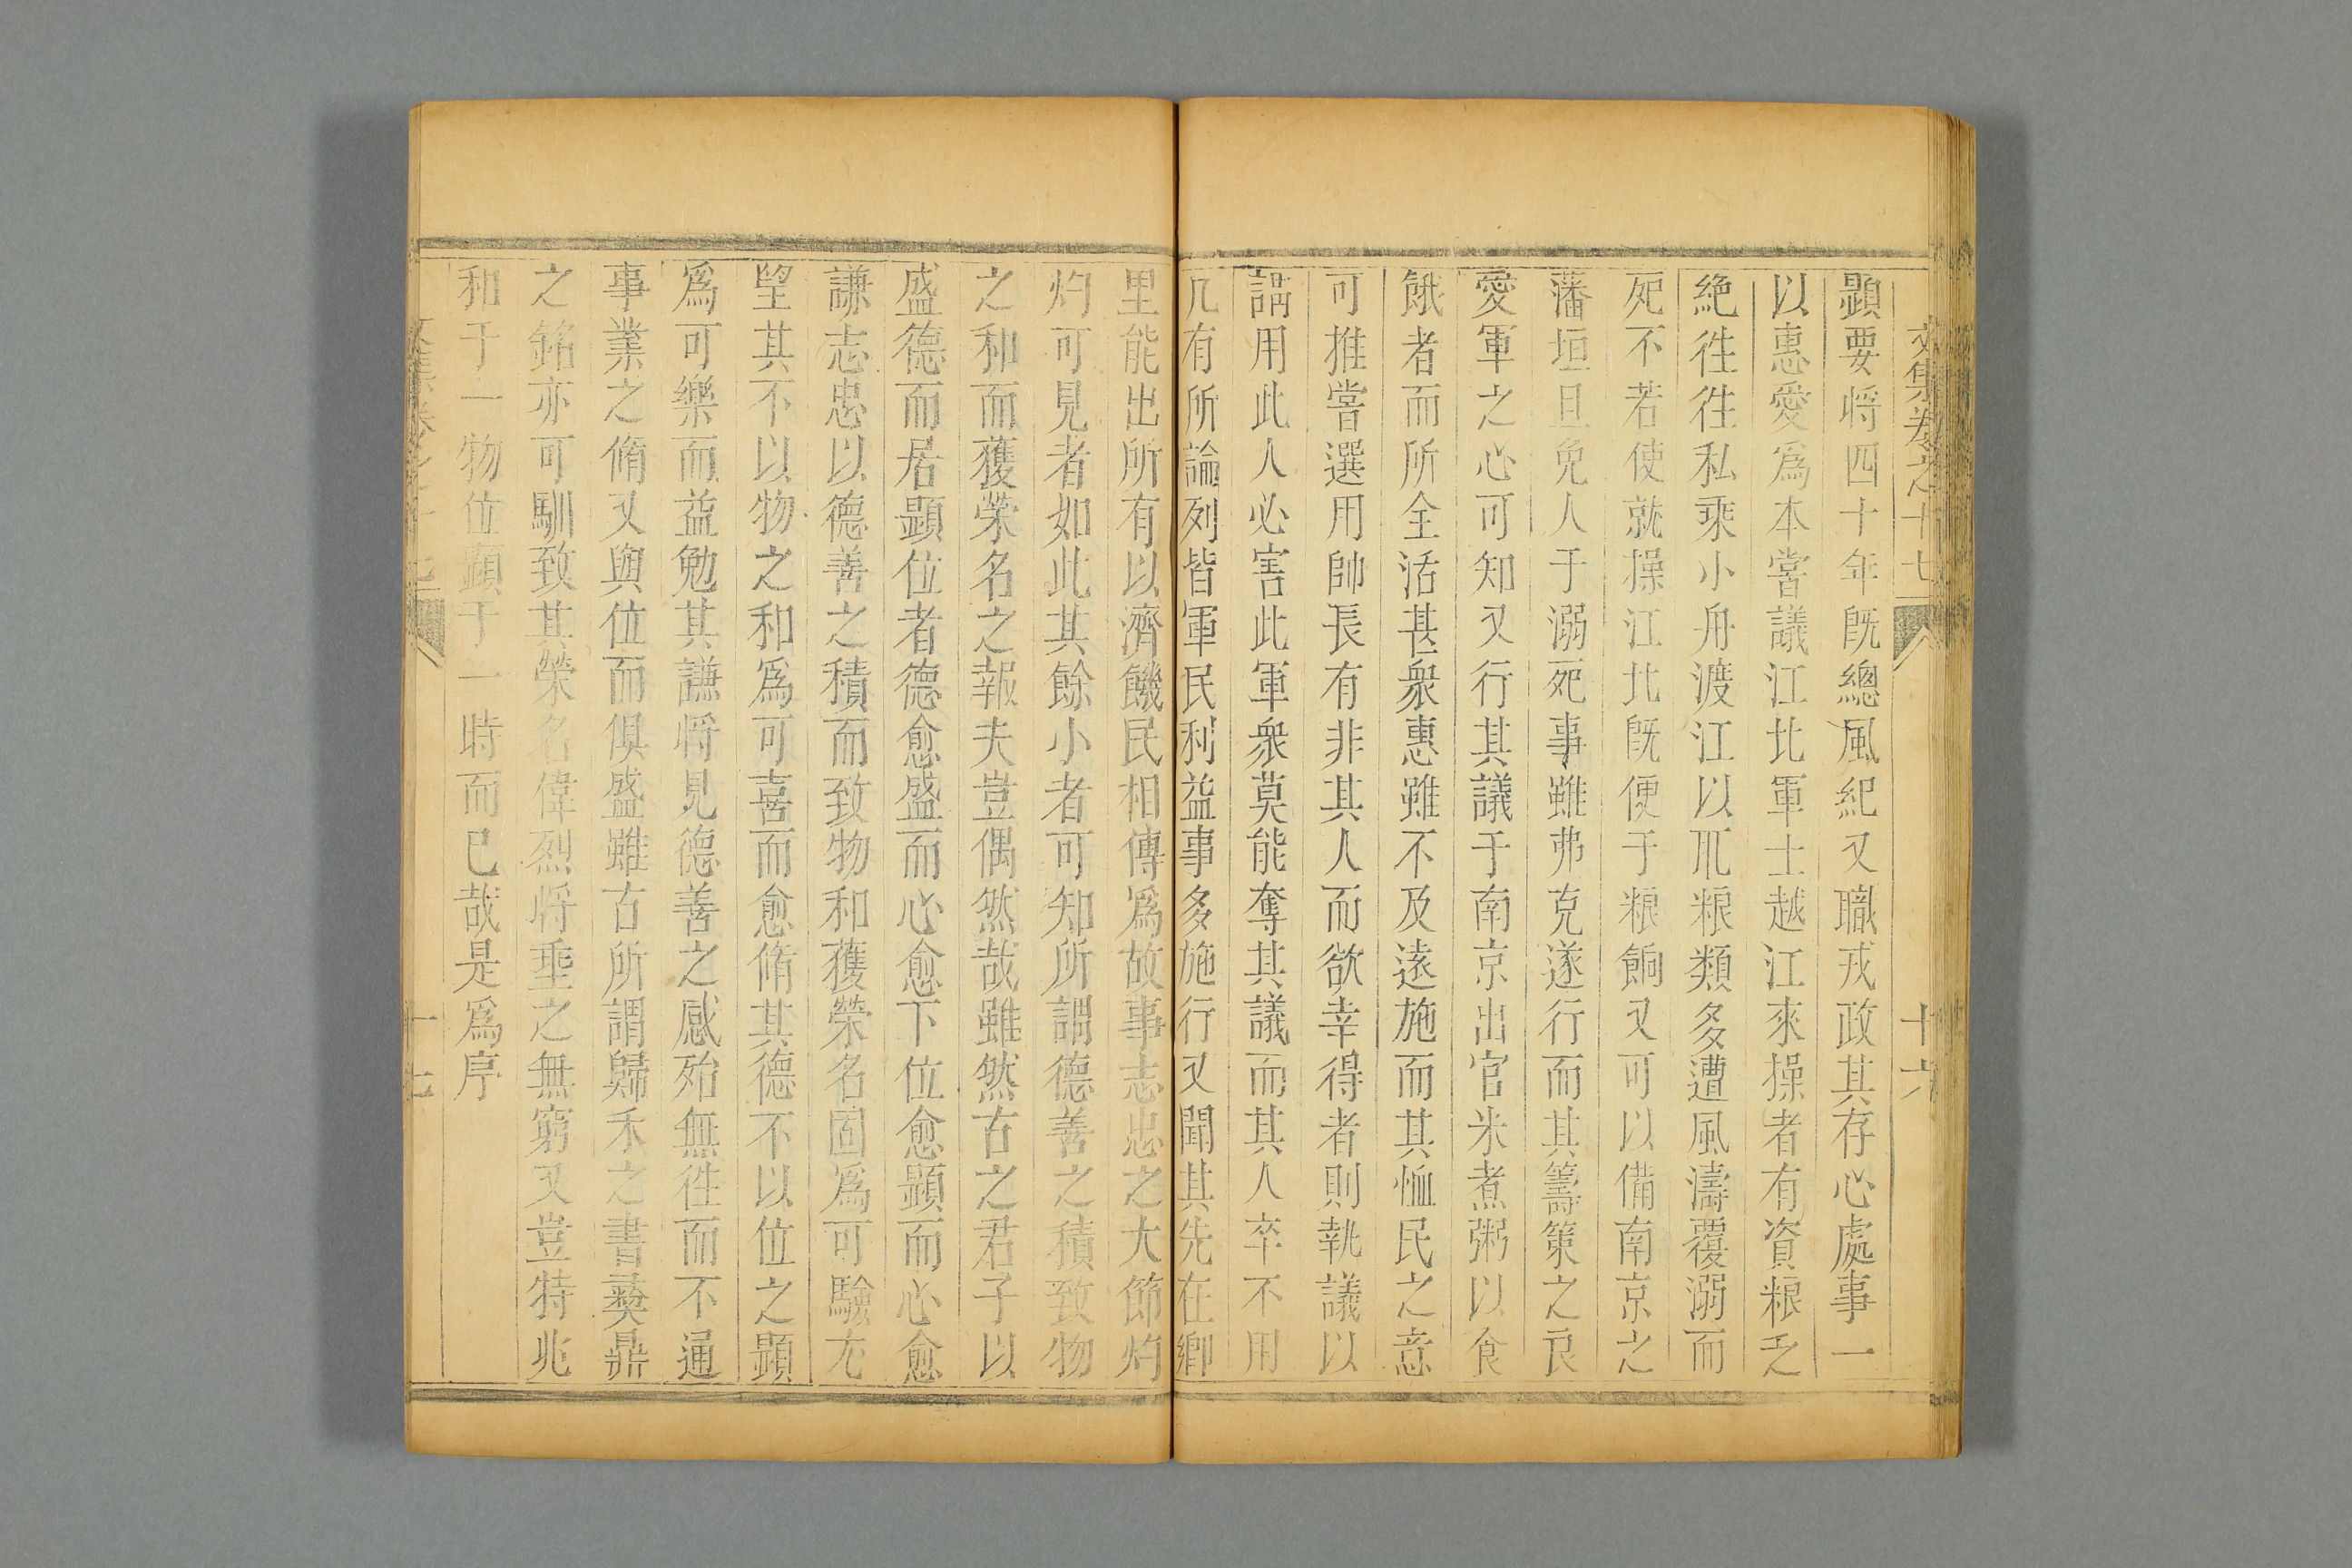 文集卷之十七 十六
顯要將四十年旣總風紀又職戎政其存心處事一
以惠愛爲本嘗議江北軍士越江來操者有資粮乏
絶徃徃私乘小舟渡江以取粮類多遭風濤覆溺而
死不若使就操江北旣便于粮餉又可以備南京之
藩垣且免人于溺死事雖弗克遂行而其籌策之良
愛軍之心可知又行其議于南京出官米煮粥以食
餓者而所全活甚衆惠雖不及遠施而其恤民之意
可推嘗選用帥長有非其人而欲幸得者則執議以
謂用此人必害此軍衆莫能奪其議而其人卒不用
凡有所論列皆軍民利益事多施行又聞其先在鄉
里能出所有以濟饑民相傳爲故事志忠之大節灼
灼可見者如此其餘小者可知所謂德善之積致物
之和而獲榮名之報夫豈偶然哉雖然古之君子以
盛德而居顯位者德愈盛而心愈下位愈顯而心愈
謙志忠以德善之積而致物和獲榮名固爲可驗尤
望其不以物之和爲可喜而愈脩其德不以位之顯
爲可樂而益勉其謙將見德善之感殆無徃而不通
事業之脩又與位而俱盛雖古所謂歸禾之書彞鼎
之銘亦可馴致其榮名偉烈將垂之無窮又豈特兆
和于一物位顯于一時而已哉是爲序
文集卷之十七 十七